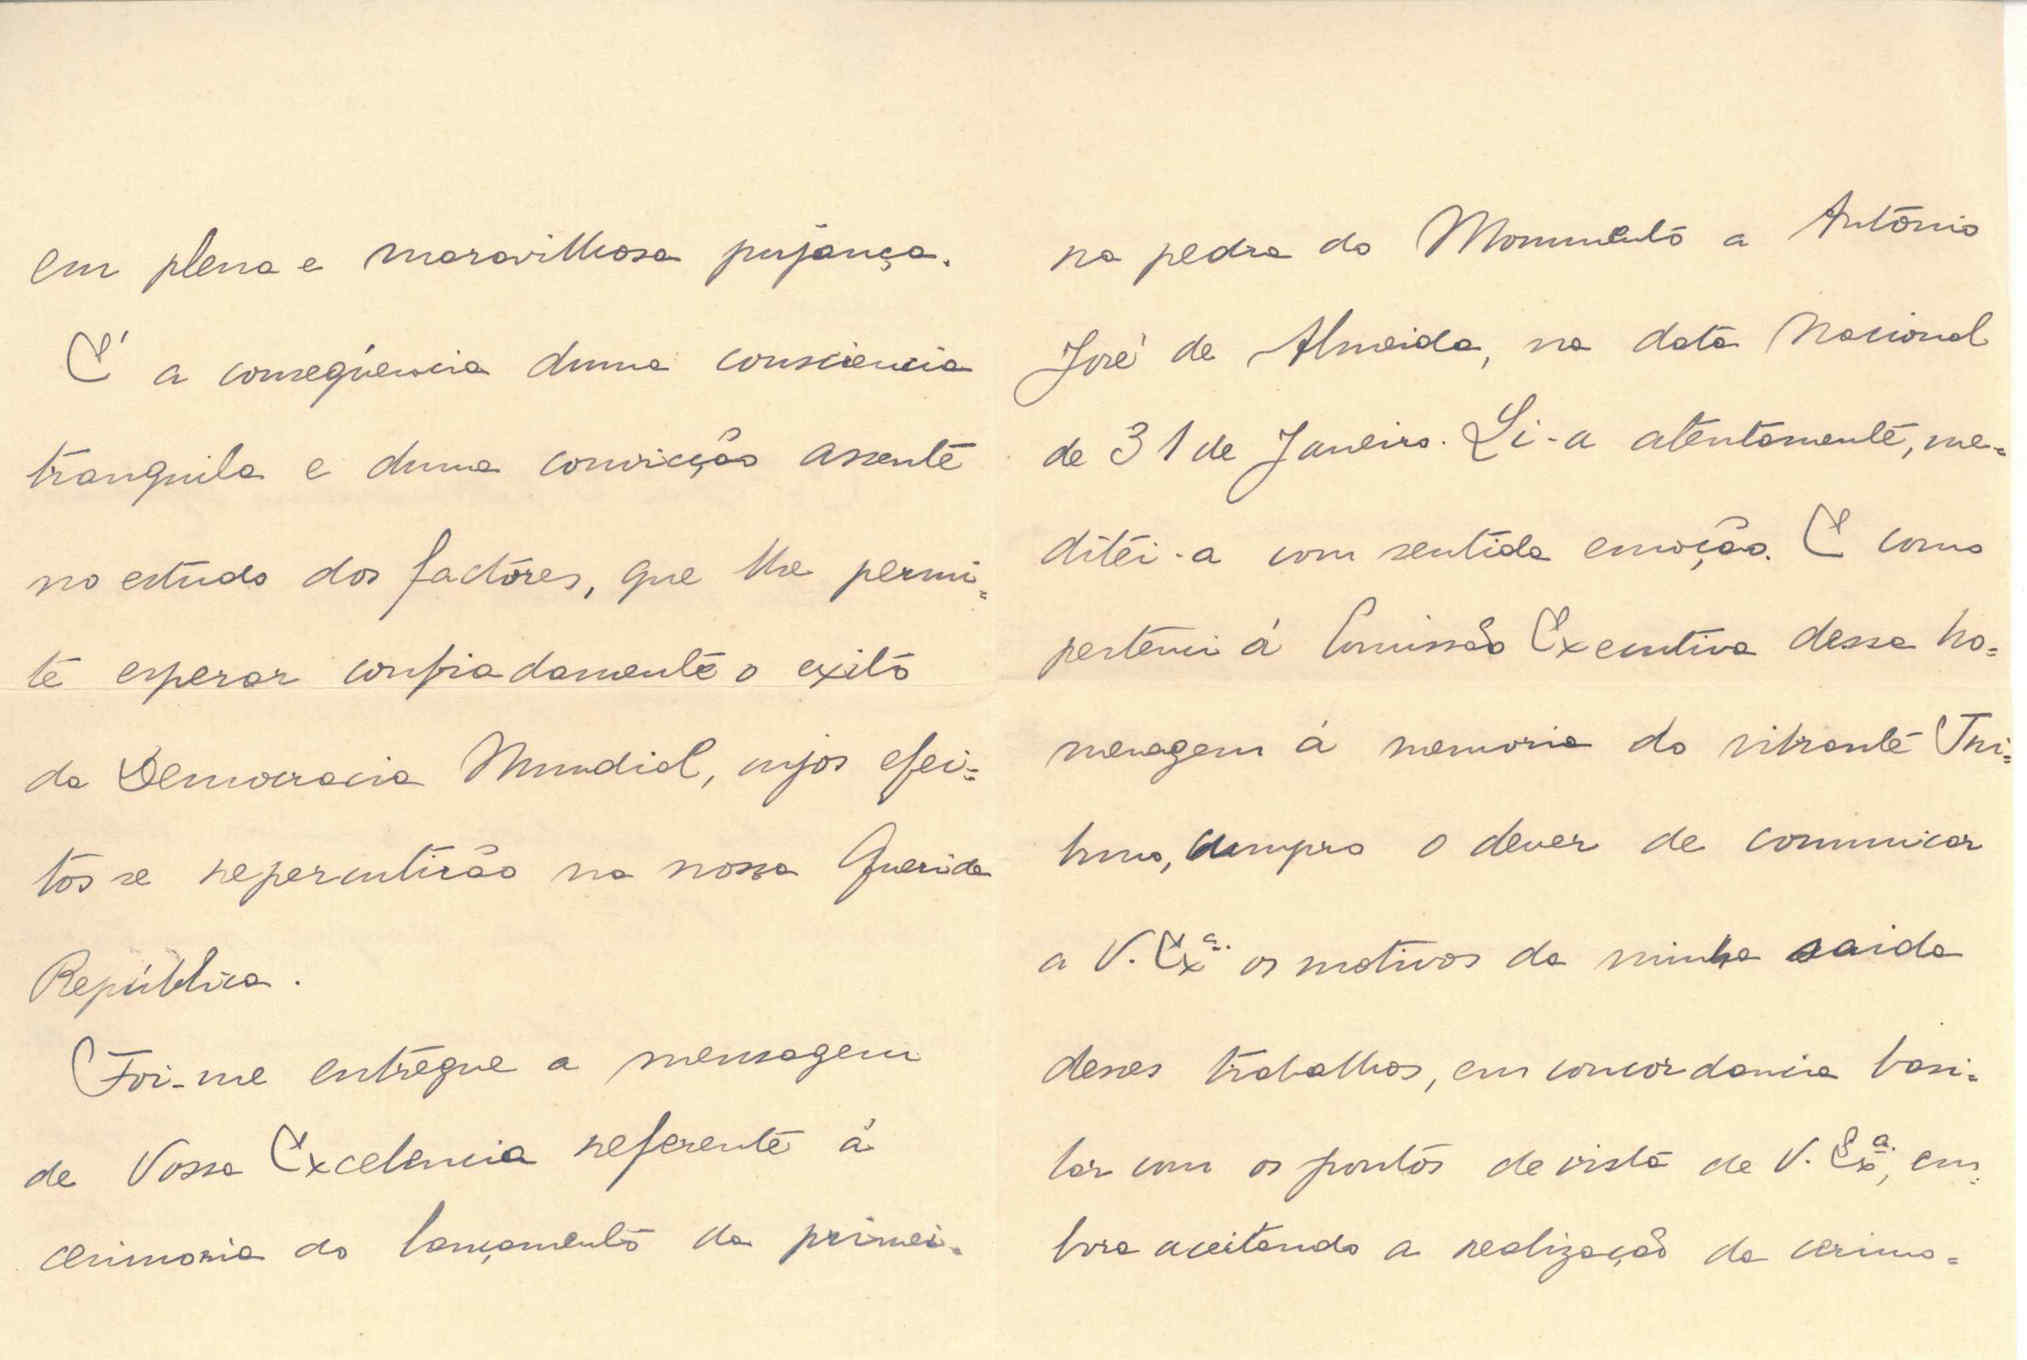 em plena e maravilhosa pujança.
É a conseqüencia duma consciencia
tranquila e duma convicção assente
no estudo dos factôres, que lhe permi=
te esperar confiadamente o exito
da Democracia Mundial, cujos efei=
tos se repercutirão na nossa Querida
República.
Foi-me entregue a mensagem
de Vossa Excelencia referente á
cerimonia do lançamento da primei=
na pedra do Monumento a António
José de Almeida, na data Nacional
de 31 de Janeiro. Li-a atentamente, me=
ditei-a com sentida emoção. E como
pertenci á Comissão Executiva dessa ho=
menagem á memoria do vibrante Tri=
buno, cumpro o dever de comunicar
a V. Exª. os motivos da minha saida
desses trabalhos, em concordancia basi=
lar com os pontos de vista de V. Exª., em=
bora aceitando a realização da cerimo=